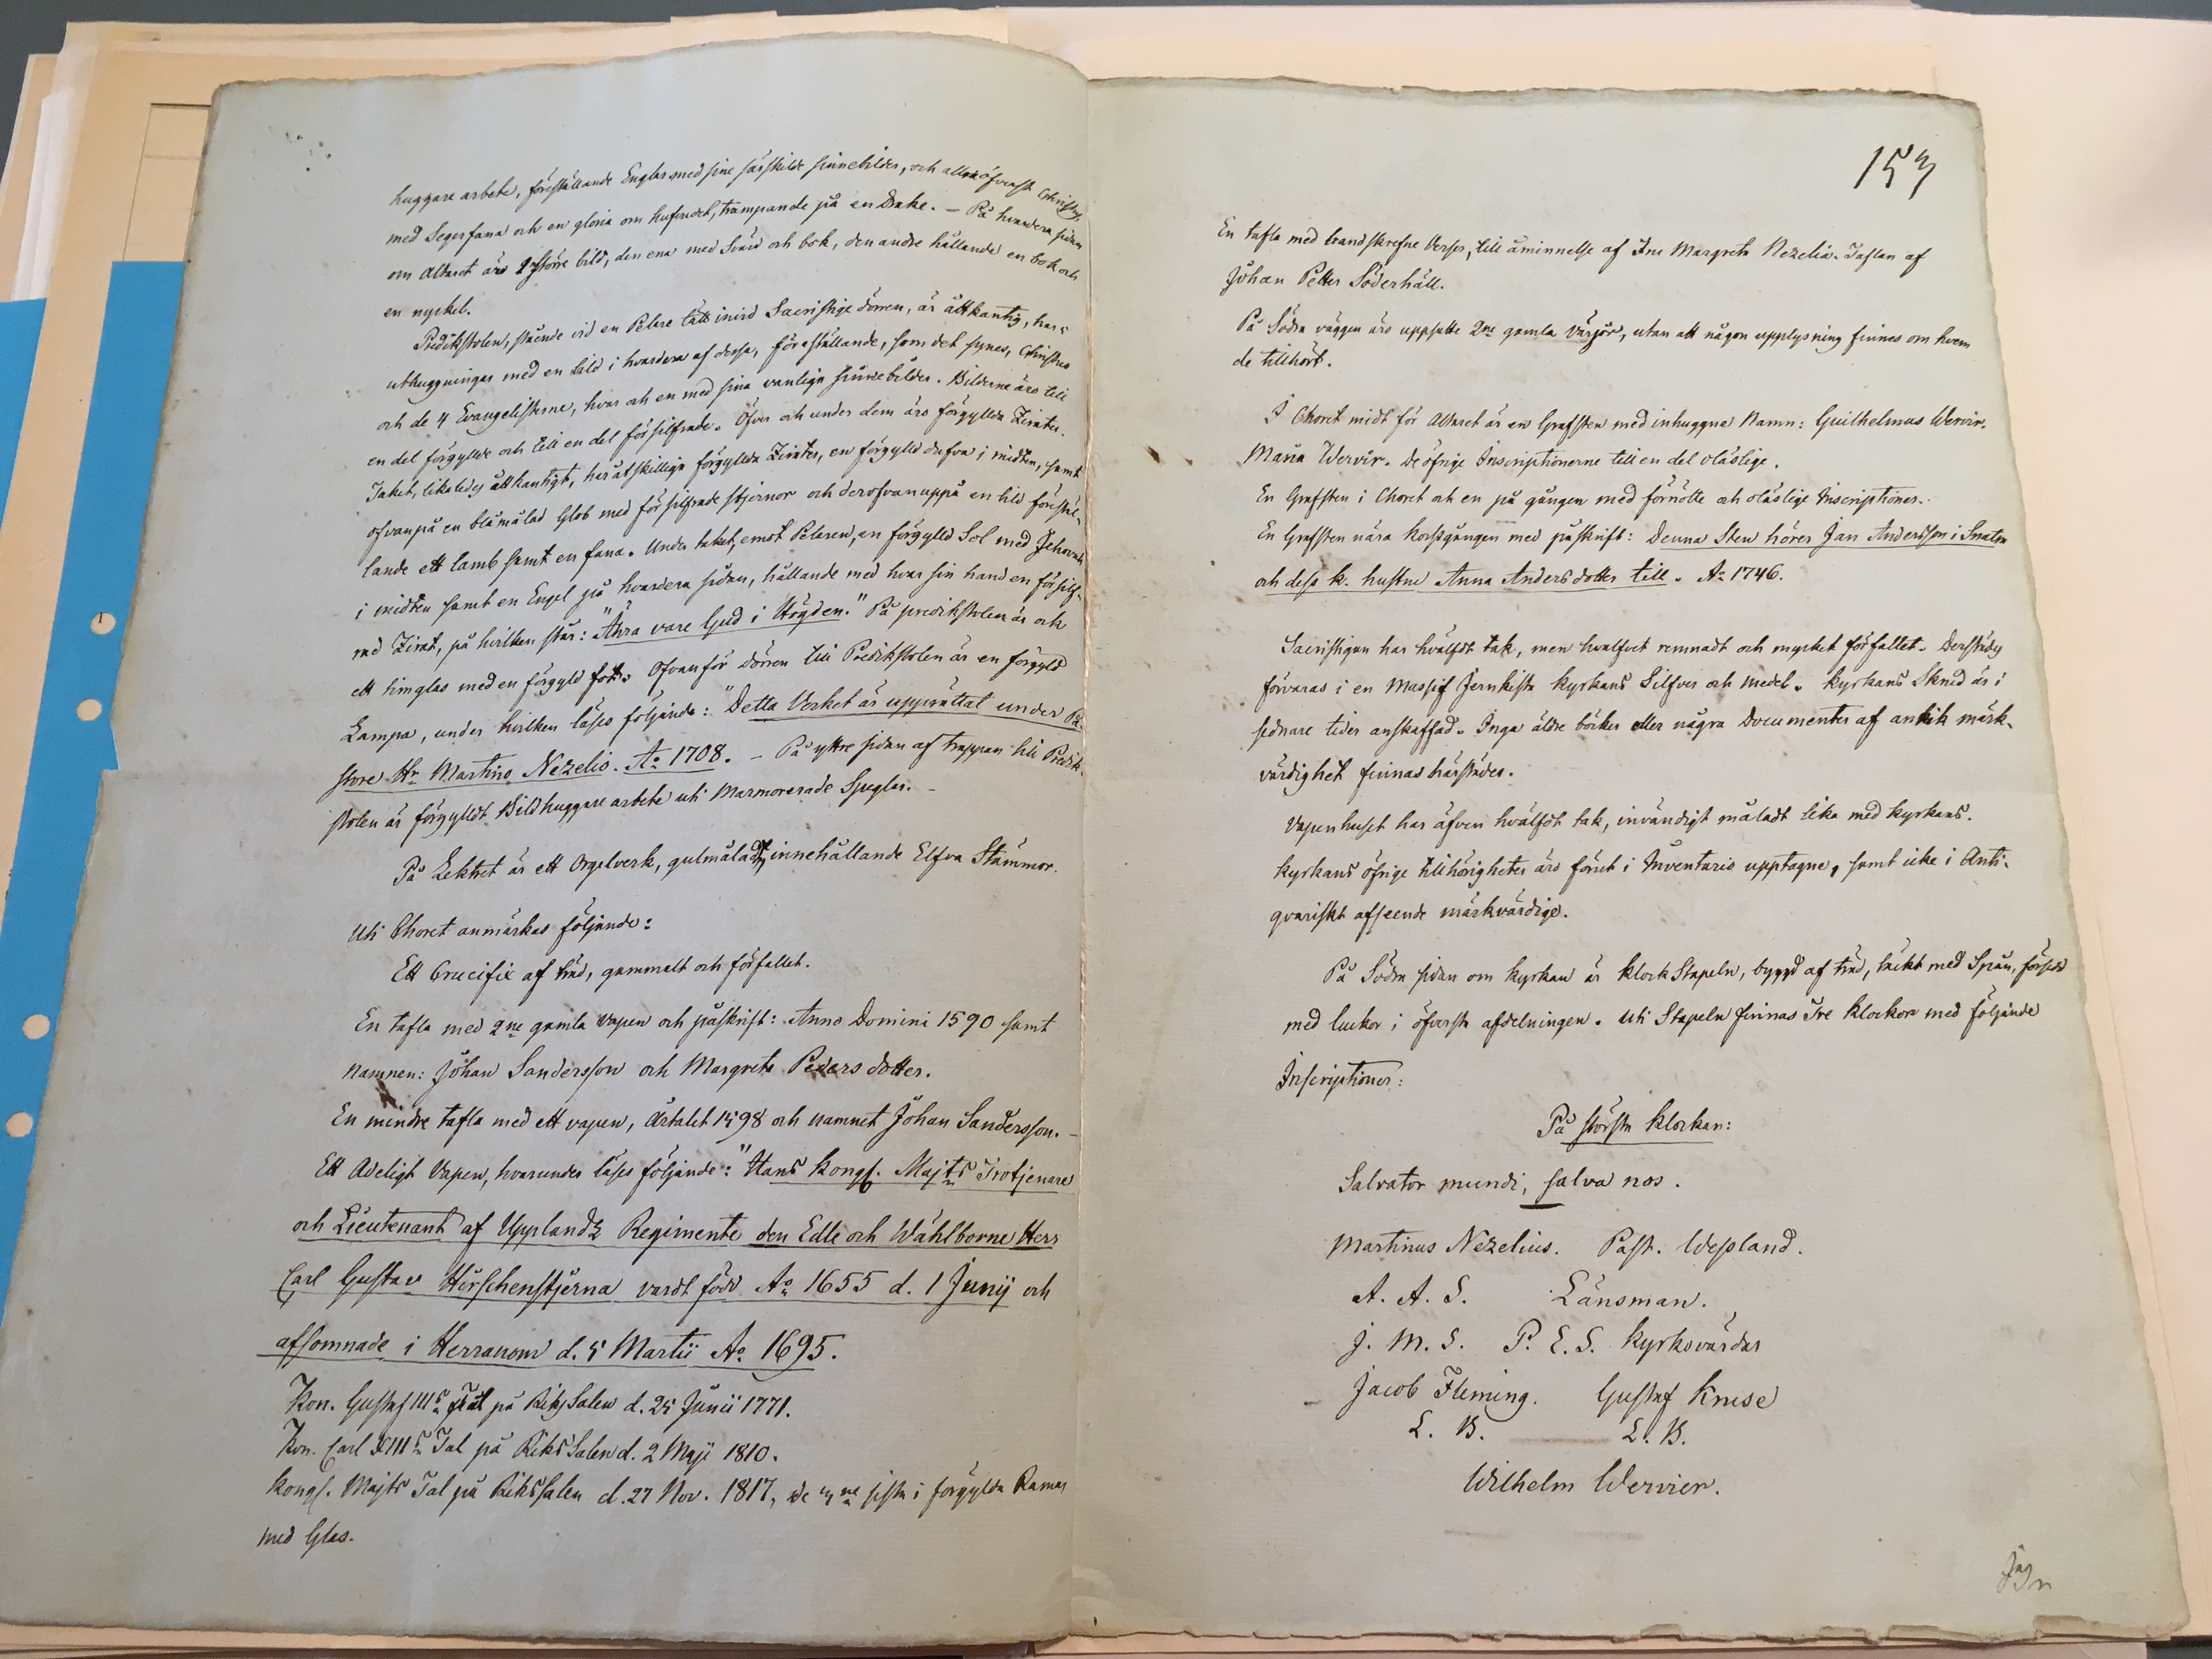 huggare arbete, föreställande Englar med sine särskilde sinnebilder, och allraöfverst Christus
med Segerfana och en gloria om hufvudet, trampande på en Drake. – På hvardera sidan
om Altaret äro 2 större bild, den ena med Svärd och bok, den andre hållande en bok och
en nyckel.
Predikstolen, stående vid en Pelare tätt invid Sacristige dörren, är åttkantig, har 5
uthuggningar med en bild i hvardera af dessa, föreställande, som det synes, Christus
och de 4 Evangelisterne, hvar och en med sina vanliga sinnebilder. Bilderne äro till
en del förgyllde och till en del försilfrade. Öfver och under dem äro förgyllda Zirater.
Taket, likaledes åttkantigt, har åtskilliga förgyllda Zirater, en förgylld dufva i midten, samt
ofvanpå en blåmålad Glob med försilfrade stjernor och derofvanuppå en bild föreställ-
lande ett lamb samt en fana. Under taket, emot Pelaren, en förgylld Sol med Jehovah
i midten samt en Engel på hvardera sidan, hållande med hvar sin hand en försilf-
rad Zirat, på hvilken står: "Ähra vare Gud i Högden." På predikstolen är och
ett timglas med en förgyld fot. Ofvanför dörren till Predikstolen är en förgyld
Lampa, under hvilken läses följande: "Detta Verket är upprättat under Pa-
store Hr Martino Nezelio. Ao 1708. – På yttre sidan af trappan till Predik-
stolen är förgylldt Bildhuggare arbete uti Marmorerade Speglar. –
På Lektret är ett Orgelverk, gulmåladt, innehållande Elfva Stämmor.
Uti Choret anmärkas följande:
Ett Crucifix af träd, gammalt och förfallet.
En tafla med 2ne gamla vapen och påskrift: Anno Domini 1590 samt
namnen: Johan Sandersson och Margreta Pedersdotter.
En mindre tafla med ett vapen, årtalet 1598 och namnet Johan Sandersson. –
Ett Adeligt Vapen, hvarunder läses följande: "Hans Kongl. Majts Trotjenare
och Lieutenant af Upplandz Regimente den Edle och Wählborne Herr
Carl Gustav Hirschenstjerna vardt född Ao 1655 d. 1 Junij och
afsomnade i Herranom d. 5 Martii Ao 1695.
Kon. Gustaf IIIs Tal på RiksSalen d. 25 Junii 1771.
Kon. Carl XIIIs Tal på RiksSalen d. 2 Maji 1810.
Kongl. Majts Tal på Rikssalen d. 27 Nov. 1817, de ne sista i förgylda Ramar
med Glas.
153
En tafla med handskrefne Verser, till åminnelse af Fru Margreta Nezelia. Taflan af
Johan Petter Söderhäll.
På Södra väggen äro uppsatte 2ne gamla Värjor, utan att någon upplysning finnes om hvem
de tillhört.
I Choret midt för Altaret är en Grafsten med inhuggne Namn: Guilhelmus Wervir.
Maria Wervir. De öfrige Inscriptionerne till en del oläslige.
En Grafsten i Choret och en på gången med förnötte och oläslige Inscriptioner.
En Grafsten nära Korsgången med påskrift: Denna Sten hörer Jan Andersson i
och dess k. hustru Anna Andersdotter till. Ao 1746.
Sacristigan har hvälfdt tak, men hvalfvet remnadt och mycket förfallet. Derstädes
förvaras i en Massif Jernkista Kyrkans Silfver och medel. Kyrkans Skrud är i
sednare tider anskaffad. Inga äldre böcker eller några Documenter af antik märk-
värdighet finnas härstädes.
Vapenhuset har äfven hvälfdt tak, invändigt måladt lika med Kyrkans.
Kyrkans öfrige tillhörigheter äro förut i Inventario upptagne, samt icke i Anti-
qvariskt afseende märkvärdige.
På Södra sidan om Kyrkan är KlockStapeln, byggd af träd, täckt med Spån, försedd
med luckor i öfversta afdelningen. Uti Stapeln finnas Tre Klockor med följande
Inscriptioner:
På största Klockan:
Salvator mundi, salva nos.
Martinus Nezelius. Past. Wessland.
A. A. S. Länsman.
J. M. S. P. E. S. Kyrkovärdar
Jacob Fleming. Gustaf Kruse
L. B. L. B.
Wilhelm Wervier.